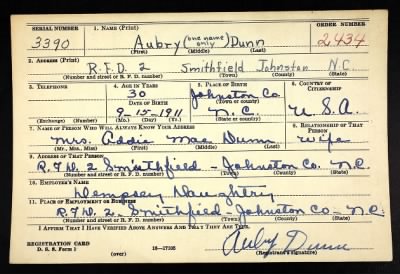 SERIAL NUMBER 1. NAME (Print) ORDER NUMBER
3390 Aubry (one name only) Dunn 2434
(First) (Middle) (Last)
2. ADDRESS (Print)
R.F.D. 2 Smithfield Johnston N.C.
(Number and street or R. F. D. number) (Town) (County) (State)
3. TELEPHONE 4. AGE IN YEARS 5. PLACE OF BIRTH 6. COUNTRY OF CITIZENSHIP
30 Johnston Co.
DATE OF BIRTH (Town or county)
9-15-1911 N.C. U.S.A.
(Exchange) (Number) (Mo.) (Day) (Yr.) (State or country)
7. NAME OF PERSON WHO WILL ALWAYS KNOW YOUR ADDRESS 8. RELATIONSHIP OF THAT PERSON
Mrs. Addie Mae Dunn Wife
(Mr., Mrs., Miss) (First) (Middle) (Last)
9. ADDRESS OF THAT PERSON
R.F.D. 2 Smithfield - Johnston Co. N.C.
(Number and street or R. F. D. number) (Town) (County) (State)
10. EMPLOYER'S NAME
Dempsey Naughtry
11. PLACE OF EMPLOYMENT OR BUSINESS
R.F.D. 2 - Smithfield - Johnston Co - N.C.
(Number and street or R. F. D. number) (Town) (County) (State)
I AFFIRM THAT I HAVE VERIFIED ABOVE ANSWERS AND THAT THEY ARE TRUE.
REGISTRATION CARD
D. S. S. Form 1 16-17105 Aubry Dunn
(Registrant's signature)